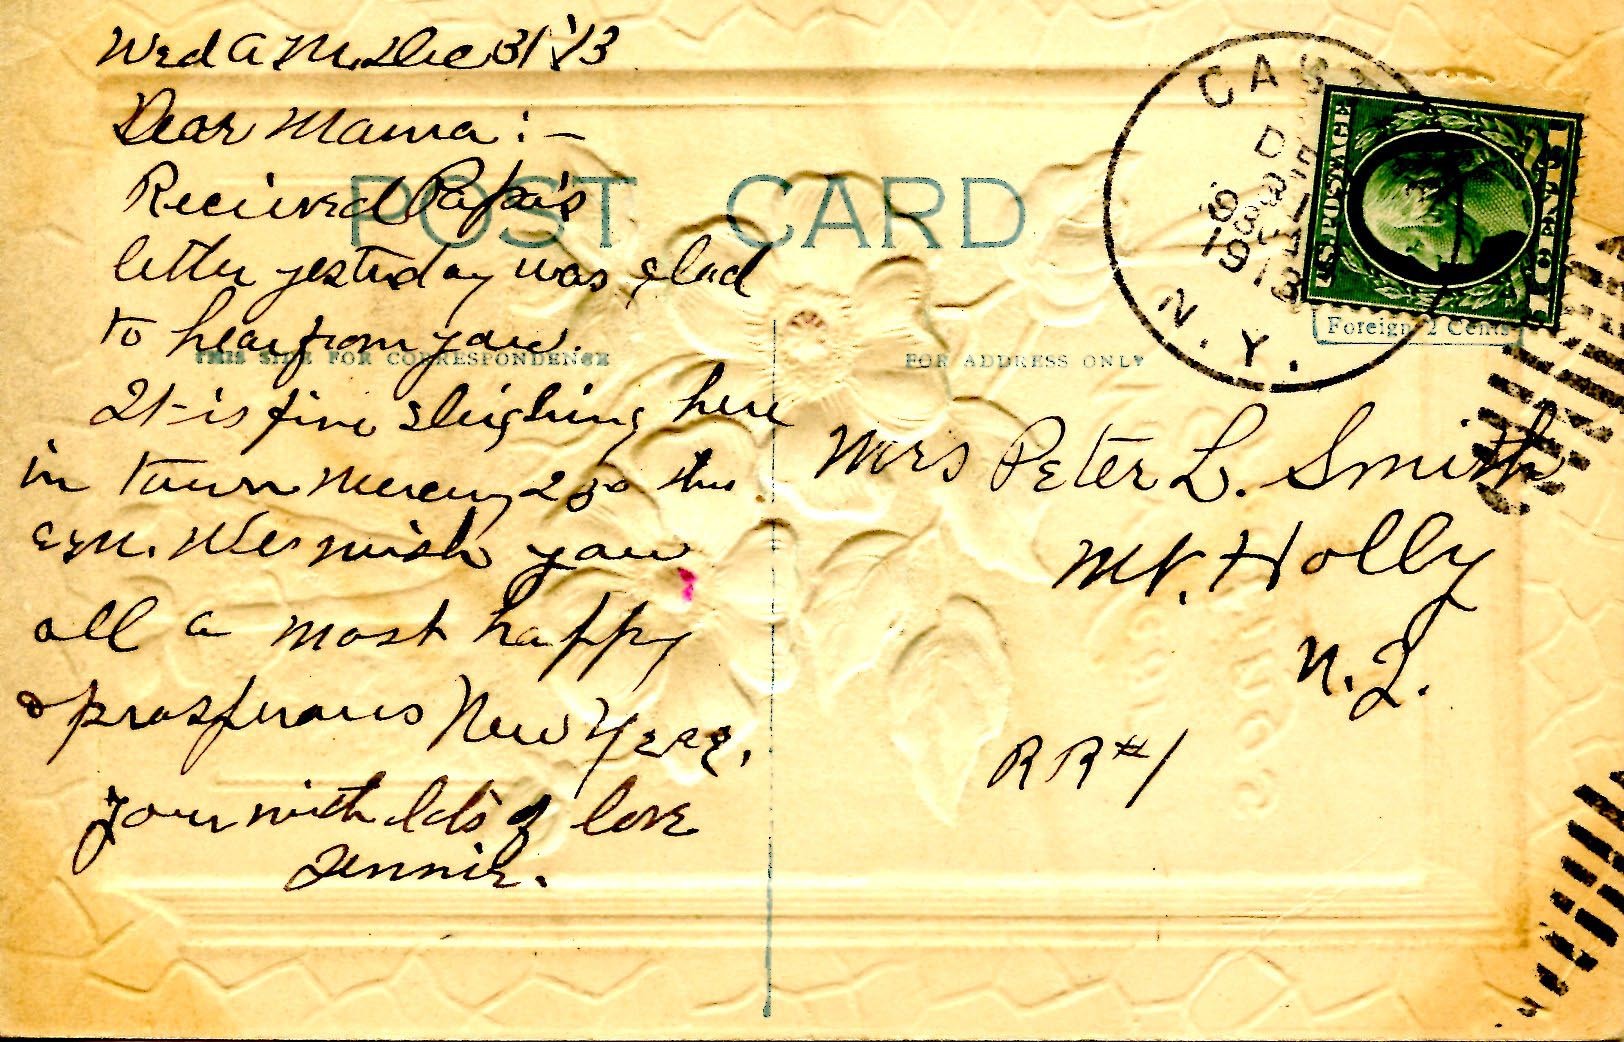 Wed A M. Dec 31 '13
Dear Mama : –
Recieved Papa's
letter yesterday was glad
to hear from you.
It is fine sleighing here
in town Mercury 23° this
a.m. We wish you
all a most happy
& prosperous New Year.
Your with lots of love
Jennie.
POST CARD
THIS SIDE FOR CORRESPONDENCE
FOR ADDRESS ONLY
Foreign 2 Cents
D
1913
N.Y.
U.S. POSTAGE
1 CENT 1
Mrs Peter L. Smith
Mt. Holly
N. J.
R R #1